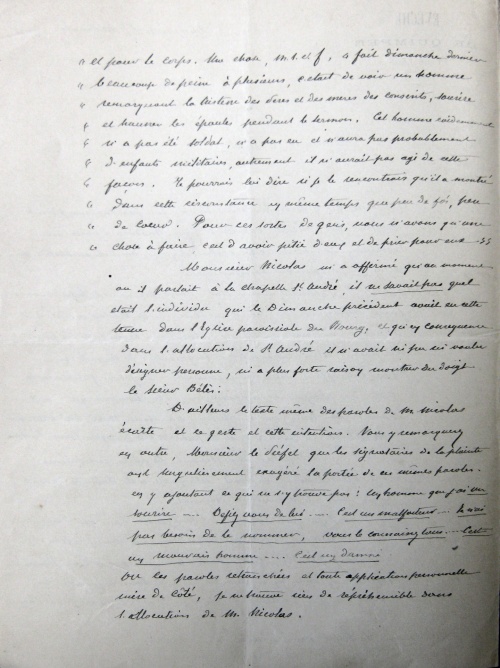 " et pour le corps. Une chose, m. t. ch. f, a fait dimanche dernier
" beaucoup de peine à plusieurs, c'était de voir un homme
" remarquant la tristesse des pères et des mères des conscrits, sourire
" et hausser les épaules pendant le sermon. Cet homme évidemment
" n'a pas été soldat, n'a pas eu et n'aura pas probablement
" d'enfants militaires, autrement il n'aurait pas agi de cette
" façon. Je pourrais lui dire si je le rencontrais qu'il a montré
" dans cette circonstance en même temps que peu de foi, peu
" de coeur. Pour ces sortes de gens, nous n'avons qu'une
" chose à faire c'est d'avoir pitié d'eux et de prier pour eux
Monsieur Nicolas m'a affirmé qu'au moment
où il parlait à la chapelle St André, il ne savait pas quel
était l'individu qui le Dimanche précédent avait eu cette
tenue dans l'église paroissiale du Bourg, et qu'en conséquence
dans l'allocution de St André il n'avait ni pu ni voulu
désigner personne, ni à plus forte raison montrer du doigt
le sieur Bétés.
D'ailleurs le texte même des paroles de M. Nicolas
écarte et ce geste et cette intention. Vous y remarquerez
en outre, Monsieur le Préfet que les signataires de la plainte
ont singulièrement exagéré la portée de ces mêmes paroles
en y ajoutant ce qui ne s'y trouve pas : un homme que j'ai vu
sourire ... Défiez vous de lui .... C'est un malfaiteur ... Je n'ai
pas besoin de le nommer, vous le connaissez tous .... C'est
un mauvais homme .... C'est un damné
Or ces paroles retranchées et toute application personnelle
mise de côté, je ne trouve rien de répréhensible dans
l'allocution de M. Nicolas.